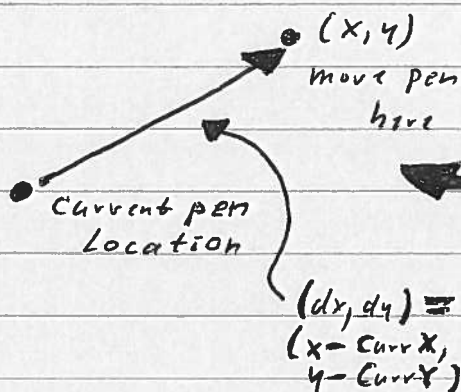 (x, y)
move pen
here
Current pen
Location
(dx, dy) =
(x - CurrX,
y - CurrY)